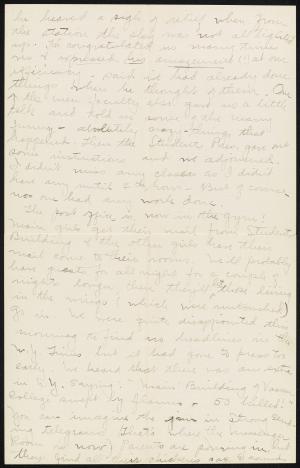 he heaved a sigh of relief when from
the station the place was not all lighted
up. He congratulated us many times
on & expressed his amazement (!) at our
efficiency - said we had already done
things when he thought of them. One
of the men faculty also gave us a little
talk and told us some of the many
funny - absolutely crazy - things that
happened. Then the Student Pres. gave us
some instructions and we adjourned.
I didn't miss any classes as I didn't
have any until 5th hour. But of course
no one had any work done.
The post office is now in the gym!
Main girls get their mail from Students
Building & the other girls have their
mail come to their rooms. We'll probably
have guests for all night for a couple of
nights longer, then they'll those living
in the wings (which were untouched)
go in. We were quite disappointed this
morning to find no headlines in the
N.Y. Times but it had gone to press too
early. We heard that there was an extra
in N.Y. saying: "Main Building of Vassar
College swept by flames - 50 killed!"
You can imagine the jam in Strong send-
ing telegrams (that's where the message
Room is now) Parents are
they find all their children safe